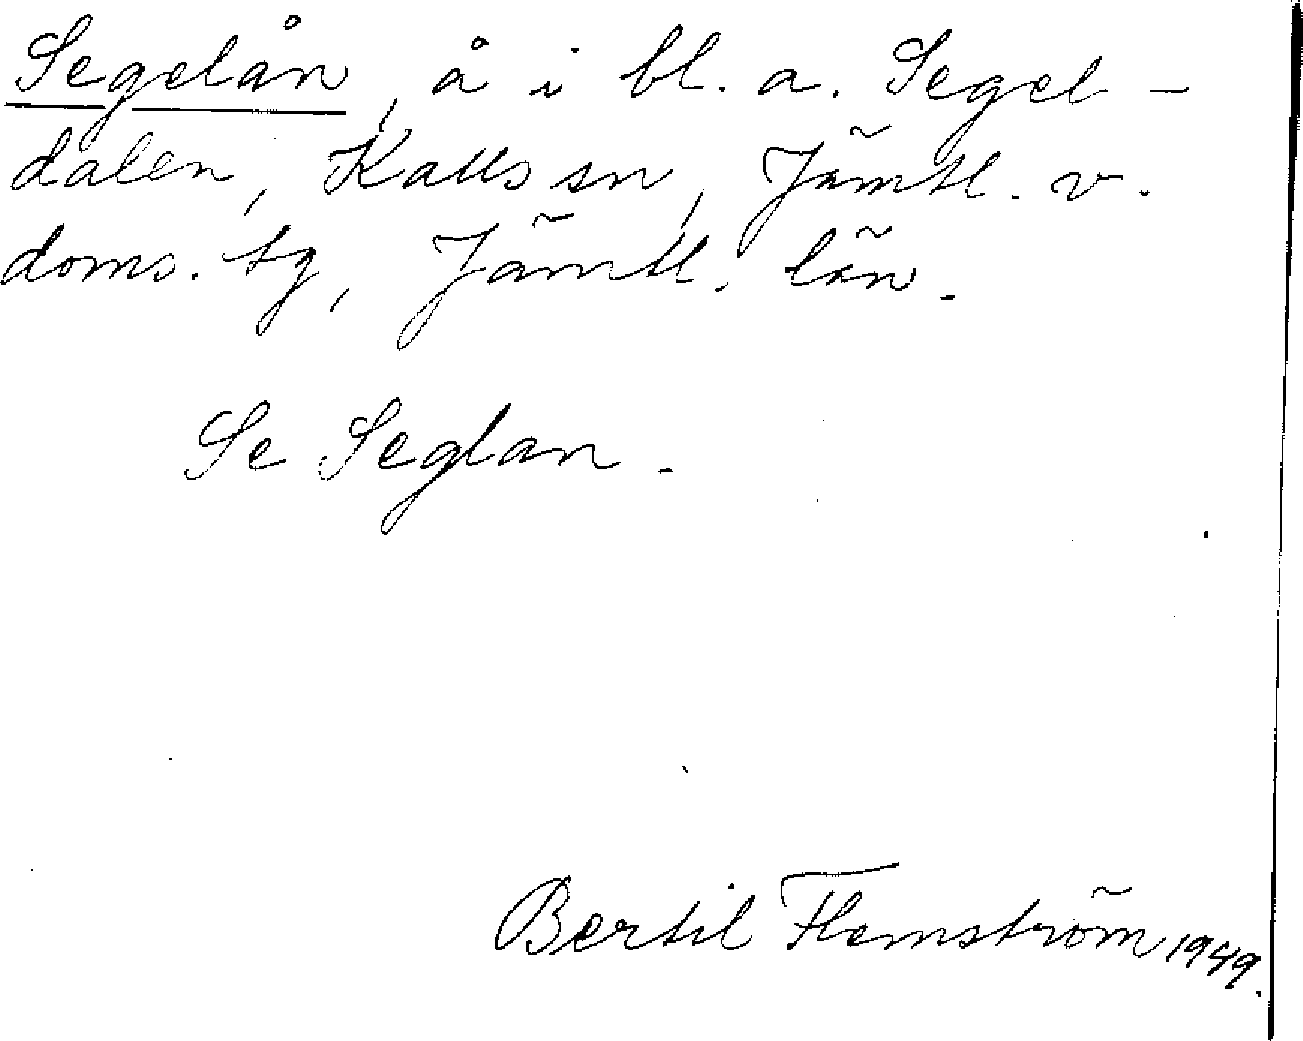 Segelån, å i bl. a. Segel-
dalen, Kalls sn, Jämtl. v.
doms. tg, Jämtl. län.
Se Seglan.
Bertil Flemström 1949.